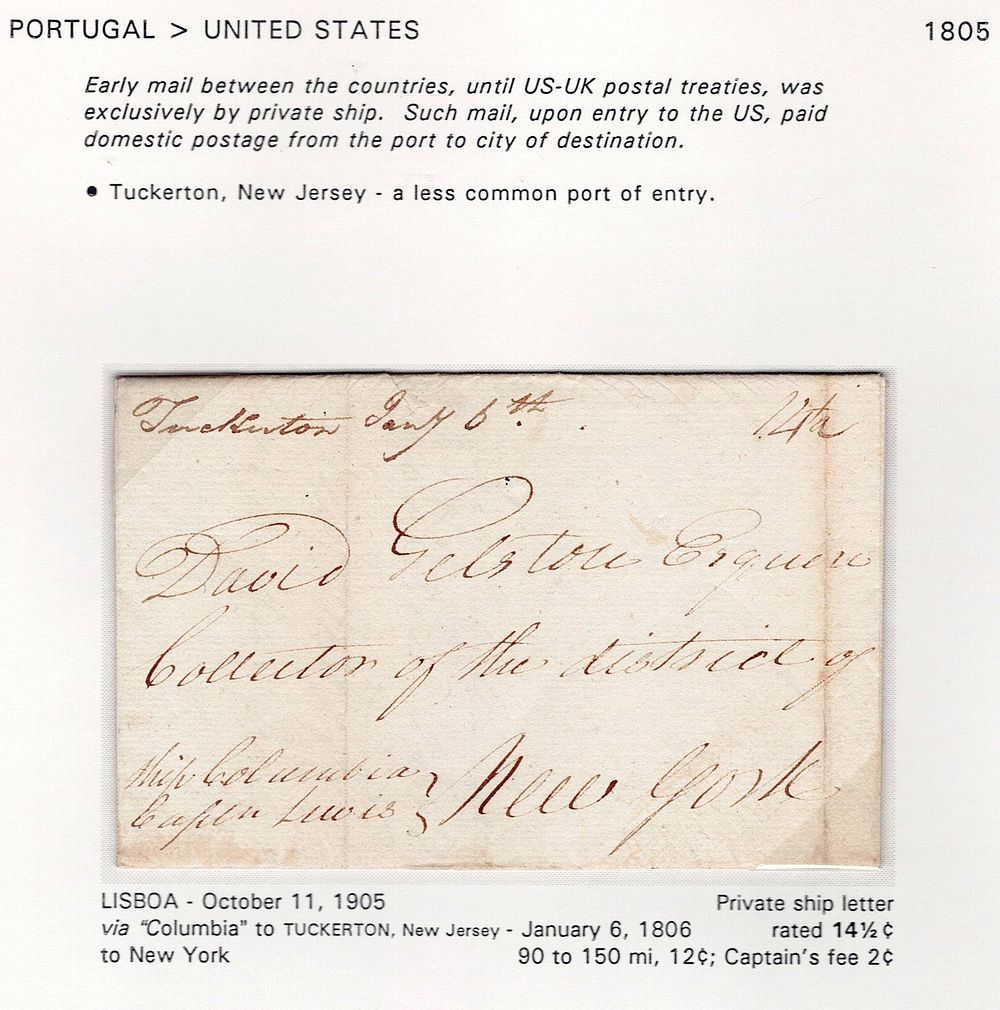 PORTUGAL > UNITED STATES 1805
Early mail between the countries, until US-UK postal treaties, was
exclusively by private ship. Such mail, upon entry to the US, paid
domestic postage from the port to city of destination.
• Tuckerton, New Jersey - a less common port of entry.
Tuckerton Jany 6th. 14½
David Gelston Esquire
Collector of the district of
ship Columbia
Capen Lewis } New York
LISBOA - October 11, 1905 Private ship letter
via "Columbia" to TUCKERTON, New Jersey - January 6, 1806 rated 14½ ¢
to New York 90 to 150 mi, 12¢; Captain's fee 2¢